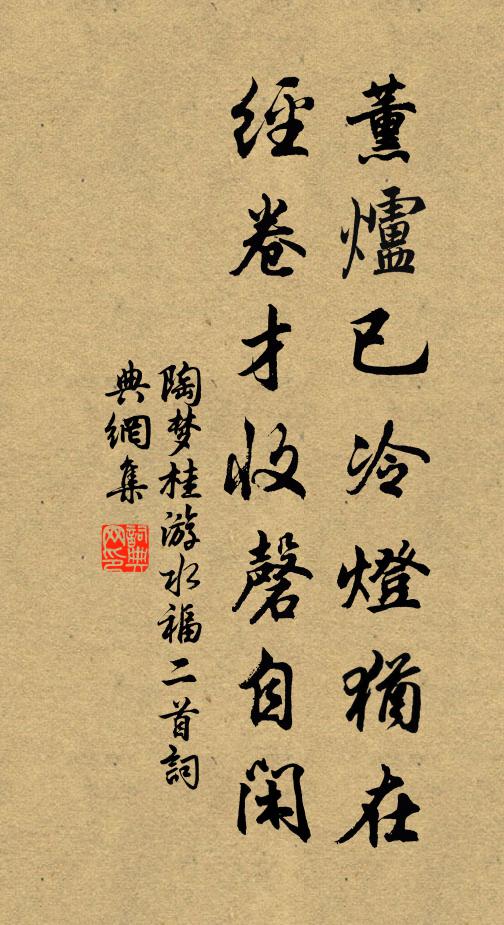 薰爐已冷燈猶在
經卷才收磬自閑
陶梦桂游水福二首詞
典網集
詞典網印